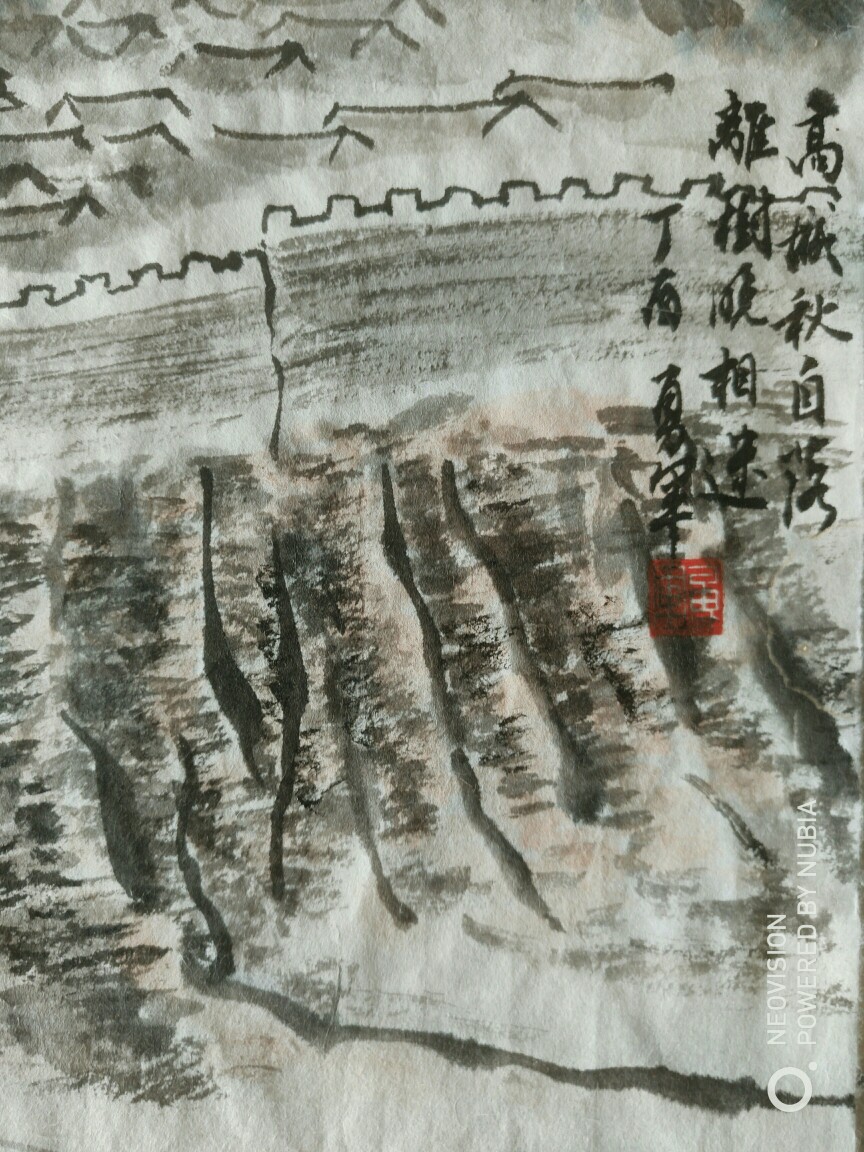 高城秋自落
雜樹晚相迷
丁酉 夏軍
NEOVISION
POWERED BY NUBIA